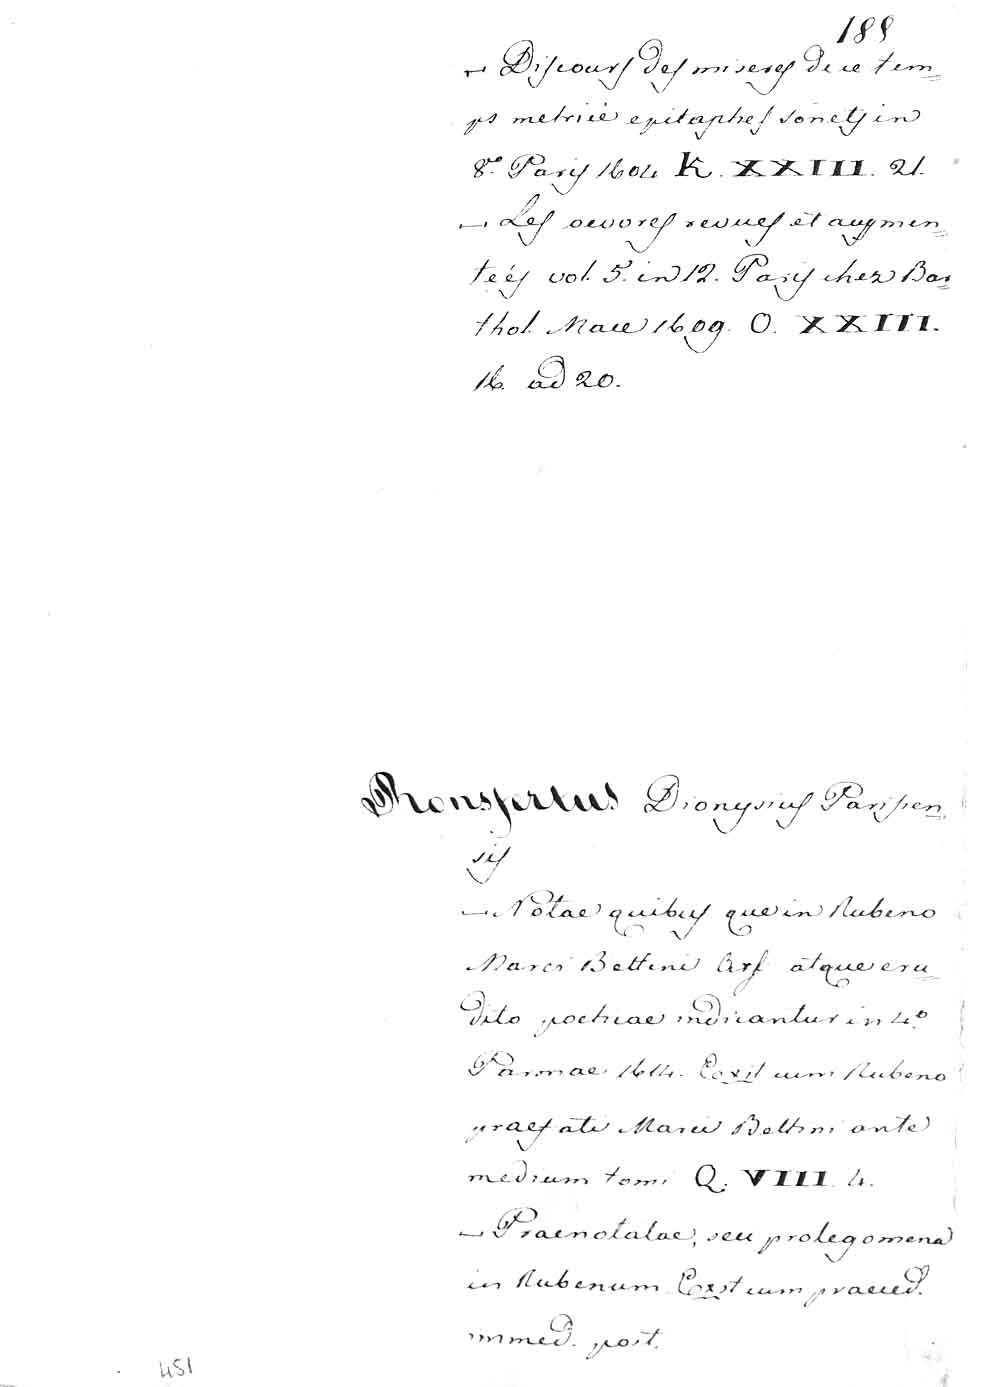 188
— Discours des miseres de ce tem=
ps metricè epitaphes sonets in
8.º Paris 1604 K. XXIII. 21.
— Les oevores revues et augmen=
teés vol. 5. in 12. Paris chez Bar=
thol. Mace 1609. O. XXIII.
16. ad 20.
Ronsfertus Dionysius Parisien=
sis
— Notae quibus que in Rubeno
Marci Bettini Ars atque eru=
dito poeticae indicantur in 4.º
Parmae 1614. Exist cum Rubeno
praefati Marci Bettini ante
medium tomi Q. VIII. 4.
— Praenotatae, seu prolegomena
in Rubenum Exst cum praeced.
immed. post.
451